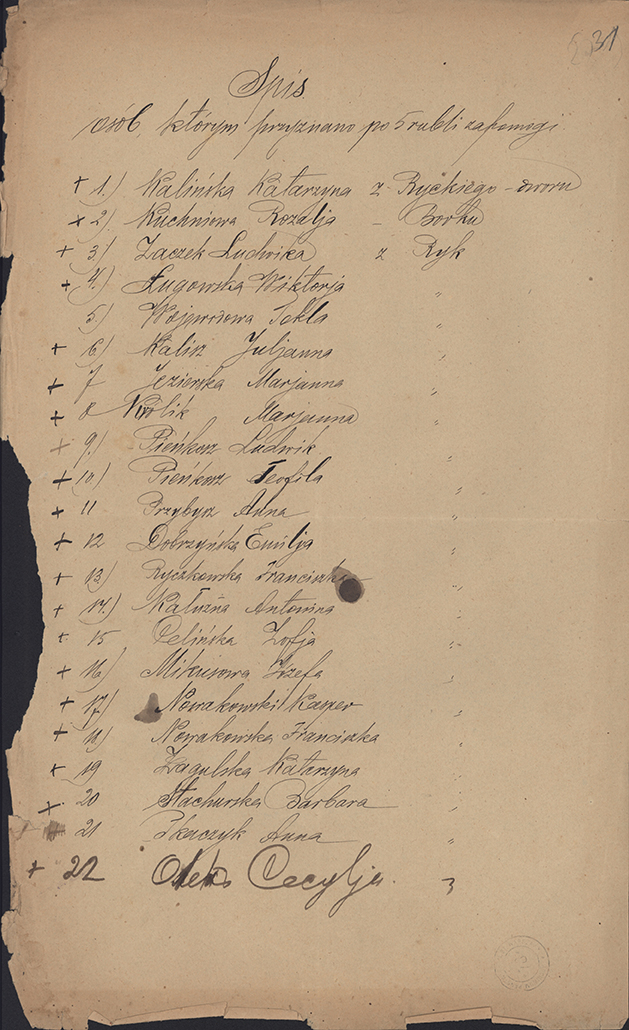 31
Spis
osób, którym przyznano po 5 rubli zapomogi.
+ 1.) Kalińska Katarzyna z Ryckiego-dworu
+ 2) Kuchniowa Rozalja – Borku
+ 3.) Zaczek Ludwika z Ryk
+ 4.) Ługowska Wiktorja "
5.) Wojewodowa Tekla "
+ 6.) Kalisz Juljanna "
+ 7 Jezierska Marjanna "
+ 8 Królik Marjanna "
+ 9.) Pieńkosz Ludwik "
+ 10.) Pieńkosz Teofila "
+ 11 Przybysz Anna "
+ 12 Dobrzyńska Emilja "
+ 13.) Ryczkowska Franciszka "
+ 14.) Kałużna Antonina "
+ 15 Celińska Zofja "
+ 16.) Mikusowa Józefa "
+ 17.) Nowakowski Kasper "
+ 18.) Nowakowska Franciszka "
+ 19 Zagulska Katarzyna "
+ 20 Stachurska Barbara "
21 Tkaczyk Anna "
+ 22 Cecylja "